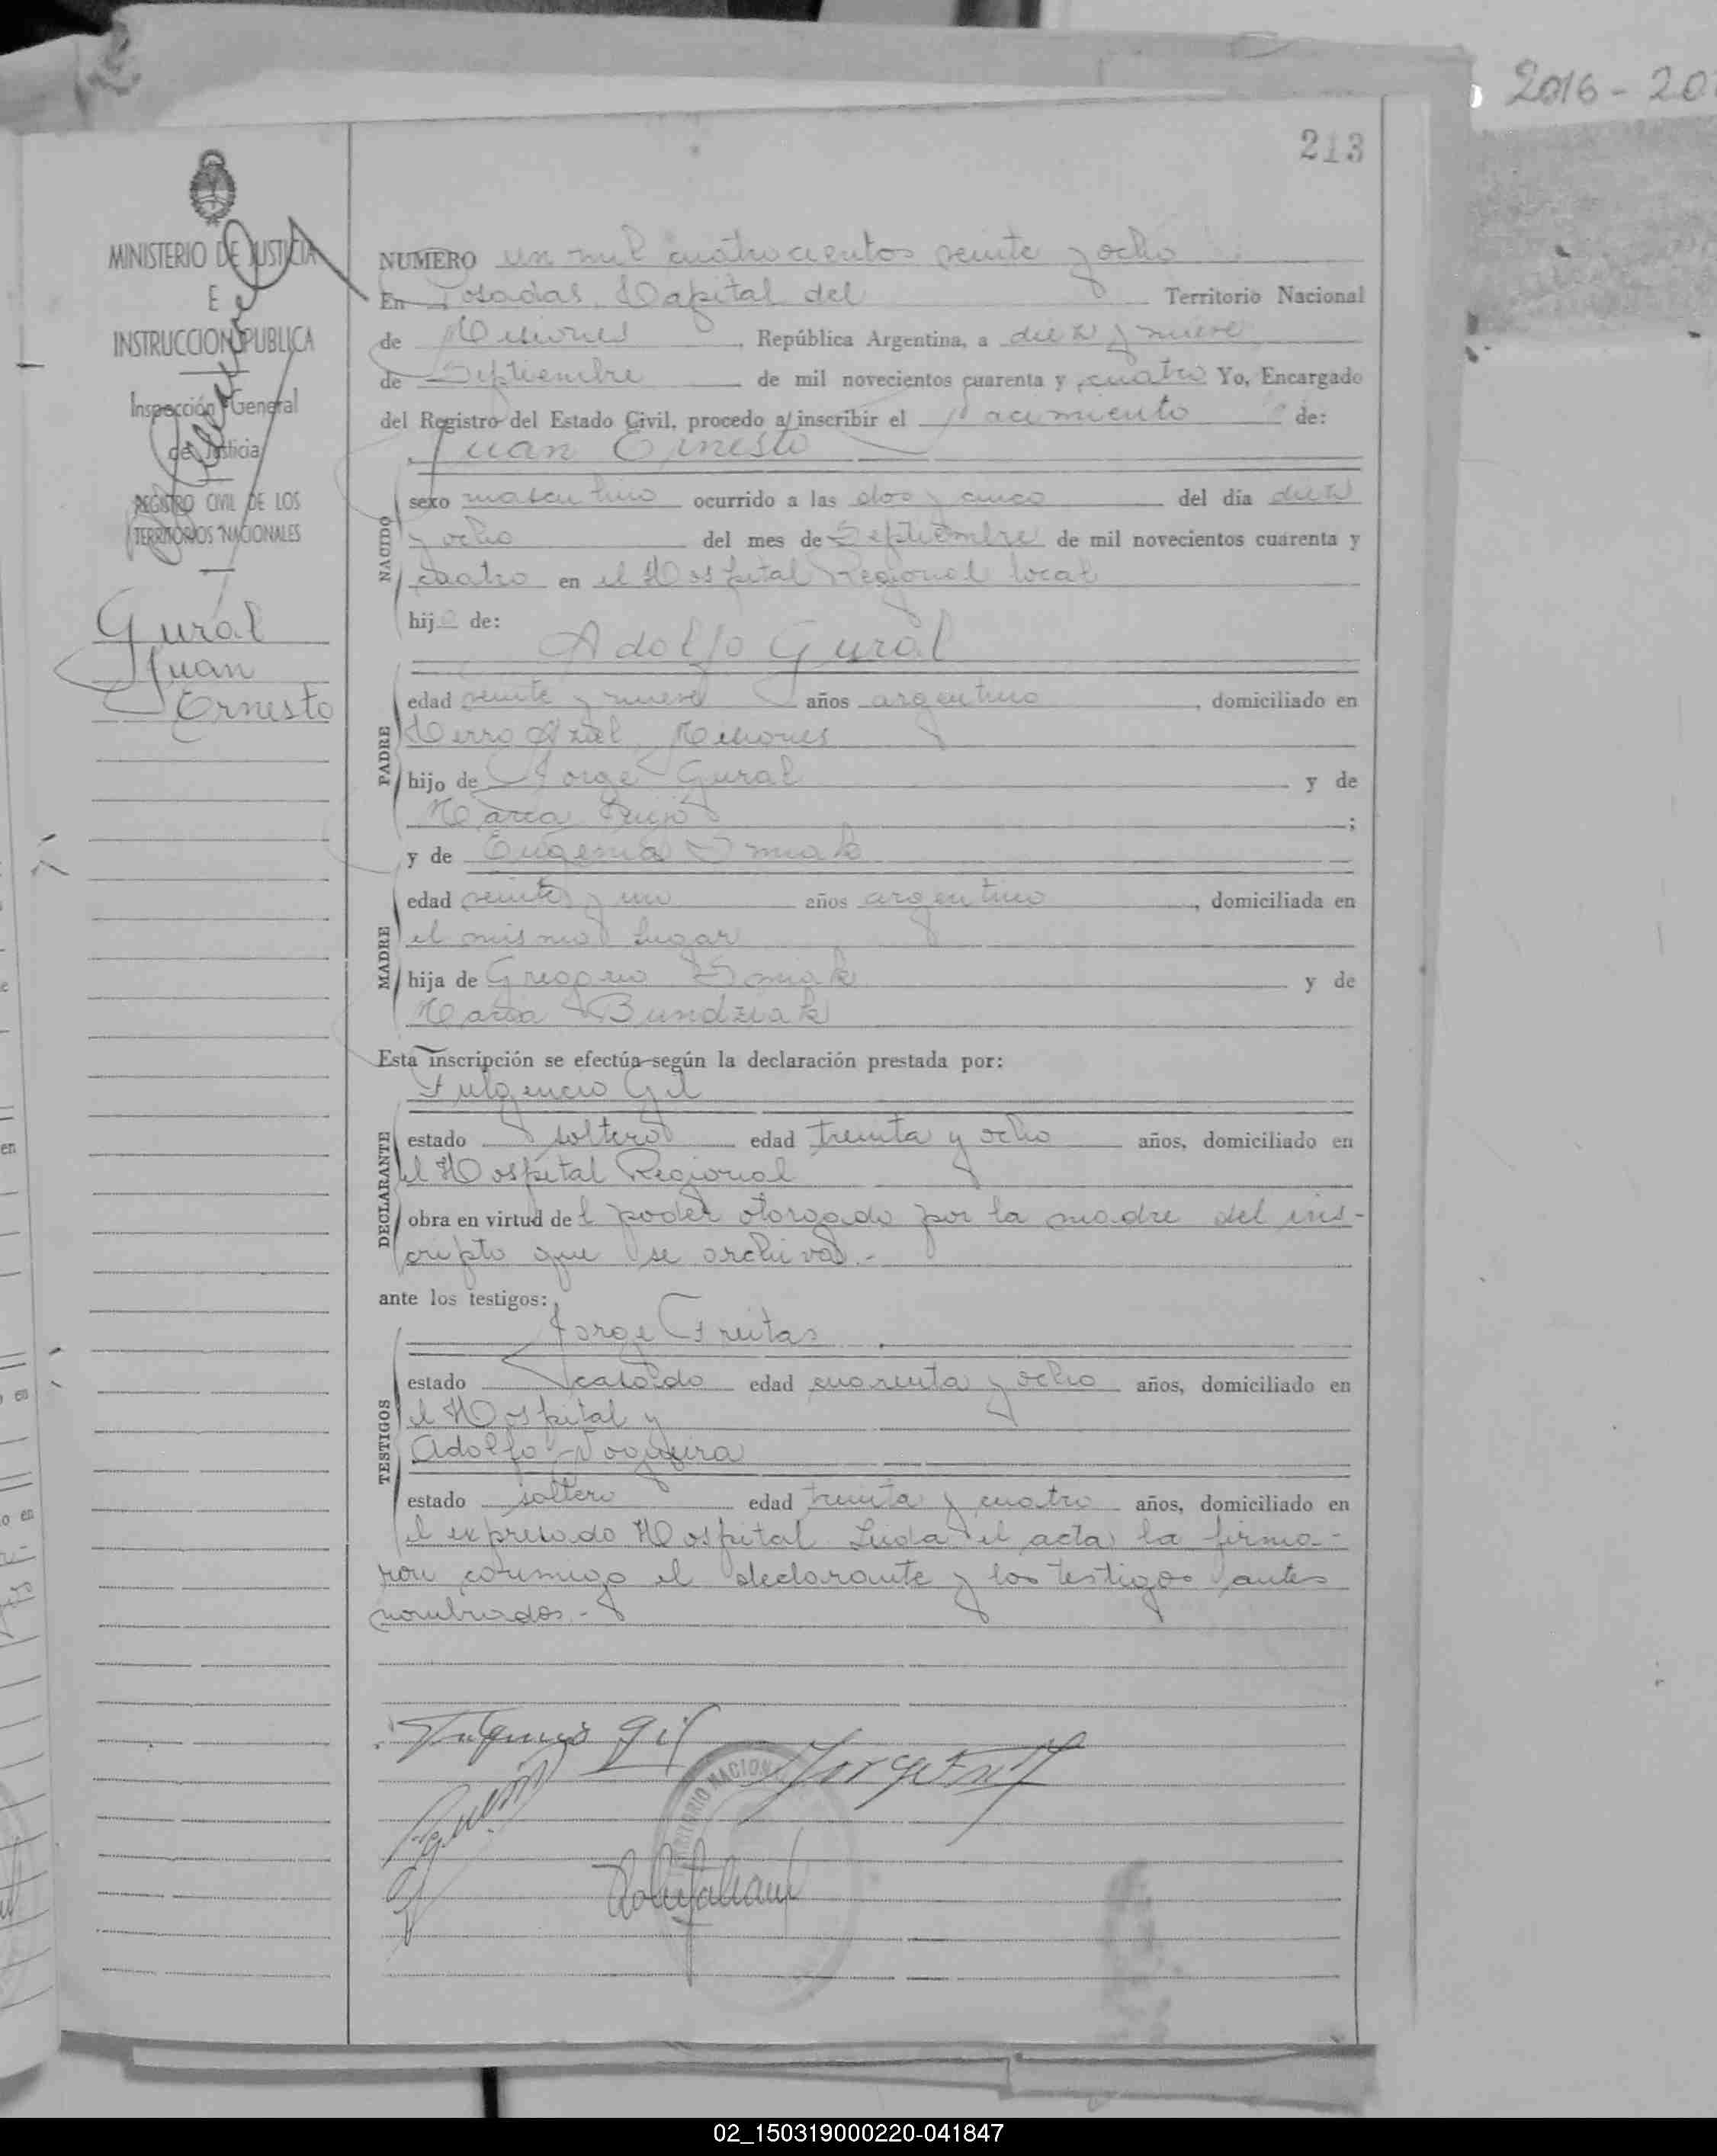 2016 - 20
213
MINISTERIO DE JUSTICIA
E
INSTRUCCION PUBLICA
Inspección General
de Justicia
REGISTRO CIVIL DE LOS
TERRITORIOS NACIONALES
Gural
Juan
Ernesto
NUMERO un mil cuatrocientos veinte y ocho
En Posadas, Capital del Territorio Nacional
de Misiones, República Argentina, a diez y nueve
de Septiembre de mil novecientos cuarenta y cuatro Yo, Encargado
del Registro del Estado Civil, procedo a inscribir el nacimiento de:
Juan Ernesto
NACIDO
sexo masculino ocurrido a las dos y cinco del día diez
y ocho del mes de Septiembre de mil novecientos cuarenta y
cuatro en el Hospital Regional local
hijo de:
Adolfo Gural
PADRE
edad veinte y nueve años argentino, domiciliado en
Cerro Azul, Misiones
hijo de Jorge Gural y de
Maria ;
y de Eugenia
MADRE
edad veinte y uno años argentino, domiciliada en
el mismo lugar
hija de Gregorio y de
Maria Bundziak
Esta inscripción se efectúa según la declaración prestada por:
Fulgencio Gil
DECLARANTE
estado soltero edad treinta y ocho años, domiciliado en
el Hospital Regional
obra en virtud del poder otorgado por la madre del ins-
cripto que se archiva.-
ante los testigos:
Jorge Freitas
TESTIGOS
estado casado edad cuarenta y ocho años, domiciliado en
el Hospital y
Adolfo Nogueira
estado soltero edad treinta y cuatro años, domiciliado en
el expresado Hospital Leida el acta la firma-
ron conmigo el declarante y los testigos antes
nombrados.-
Fulgencio Gil
TERRITORIO NACIONAL
02_150319000220-041847